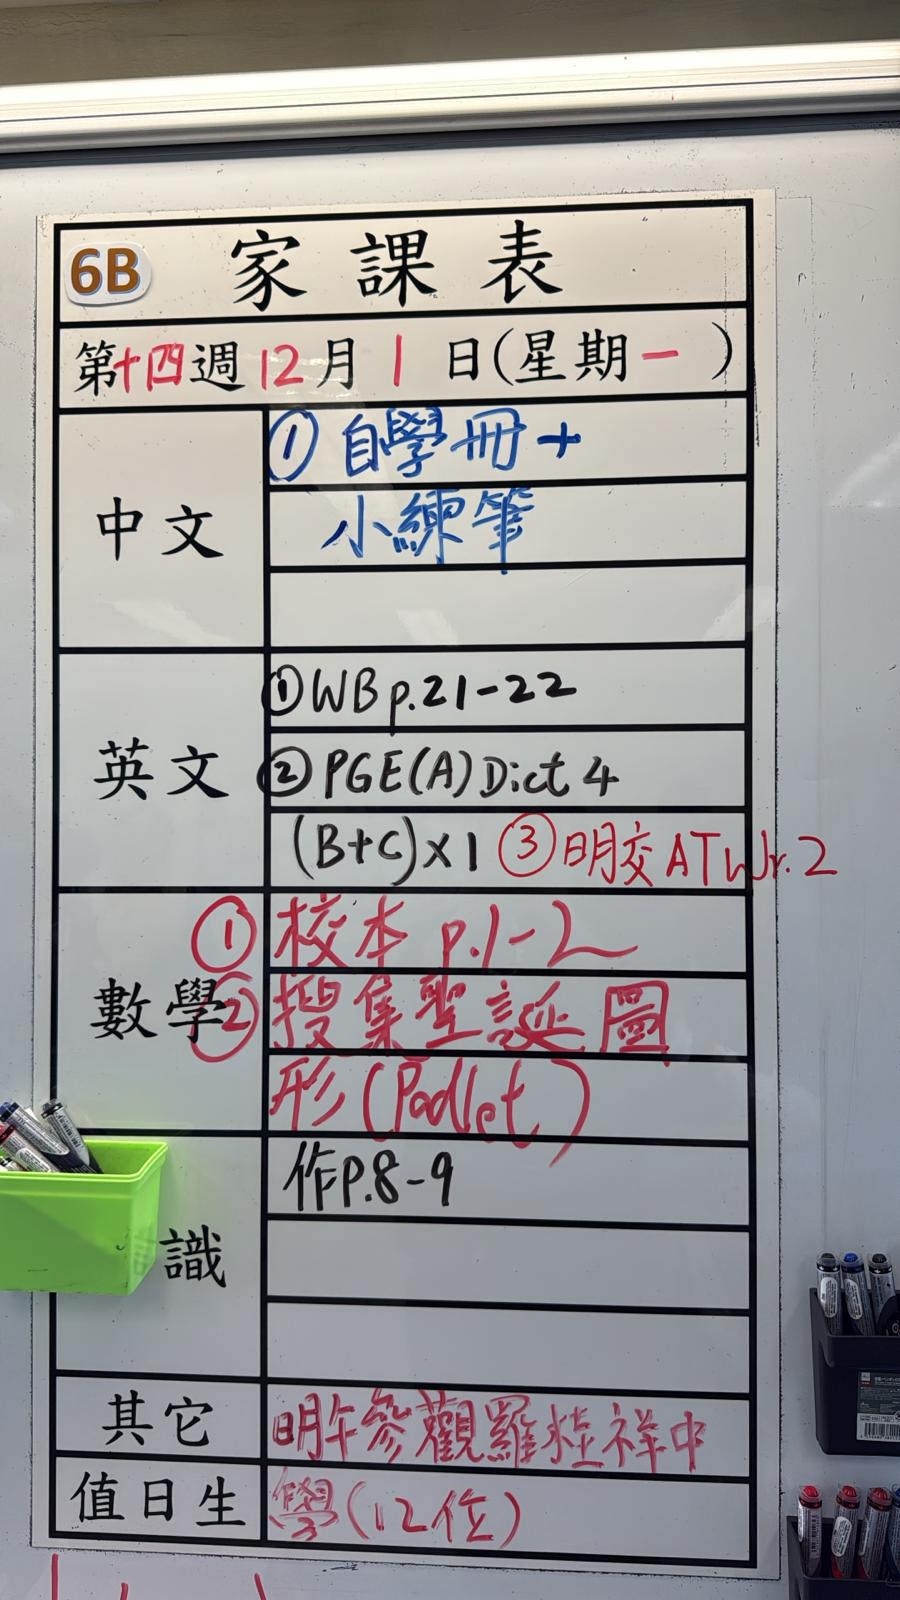 6B 家課表
第十四週 12月 1 日(星期一 )
中文
① 自學冊+
小練筆
英文
①WB p.21-22
②PGE(A) Dict 4
(B+C)×1 ③明交 AT Wr.2
數學
① 校本 p.1-2
② 搜集聖誕圖
形(Padlet)
識
作P.8-9
其它
明午參觀羅桂祥中
值日生
學(12位)